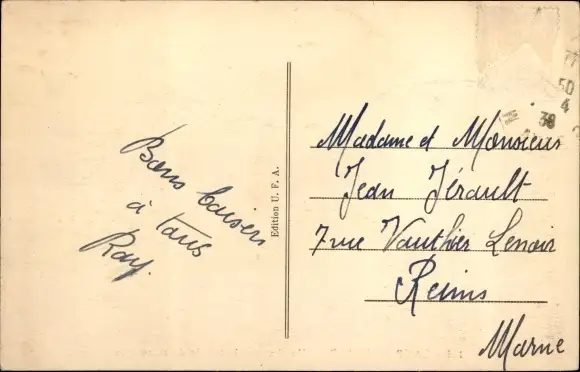 Bons baisers
à tous
Ray.
Edition U. F. A.
50
4
38
Madame et Monsieur
Jean Jérault
7 rue Vauthier Lenoir
Reims
Marne